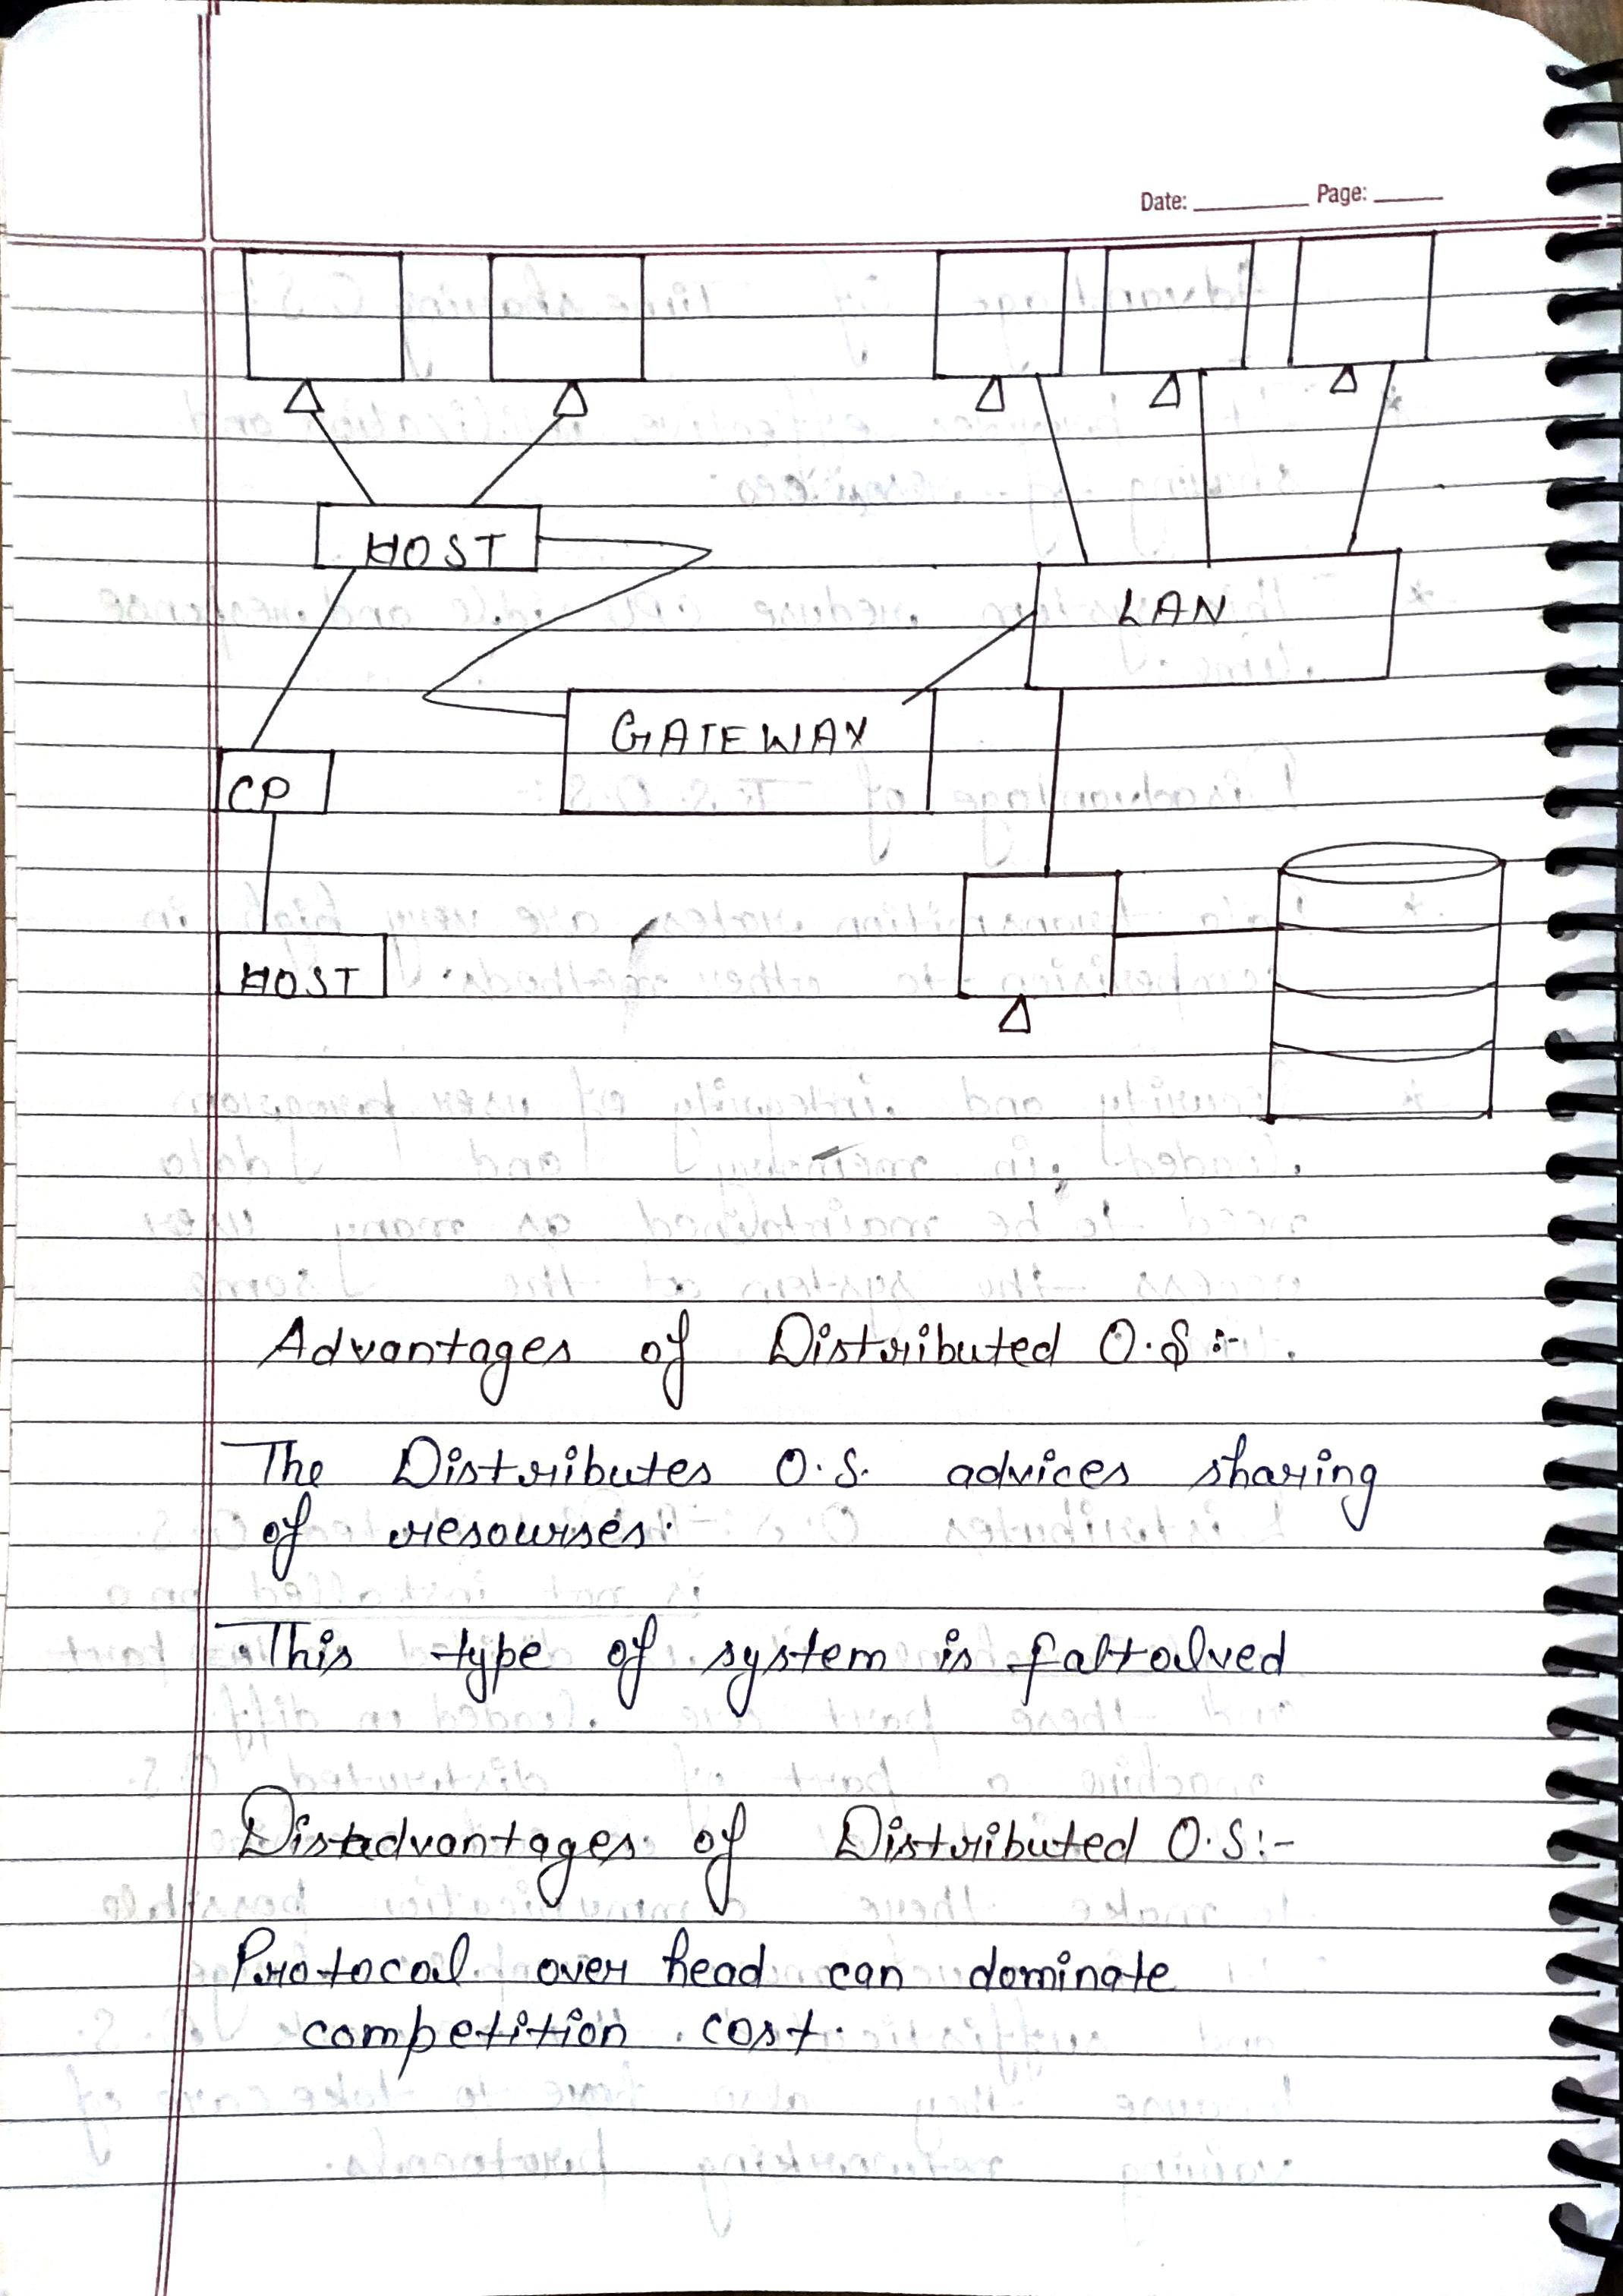 Date: Page:
HOST
LAN
GATEWAY
CP
HOST
Advantages of Distributed O.S :-
The Distributes O.S. advices sharing
of resourses.
This type of system is faltolved
Disadvantages of Distributed O.S:-
Protocol over head can dominate
competition cost.